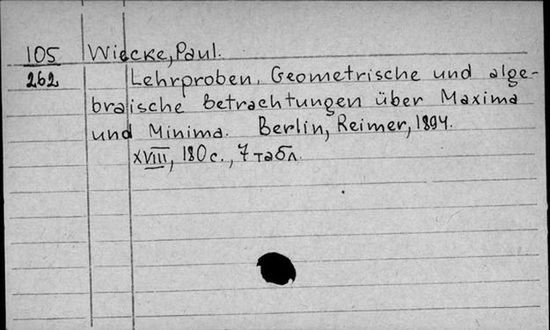 105 Wiecke, Paul.
262 Lehrproben. Geometrische und alge-
braische Betrachtungen über Maxima
und Minima. Berlin, Reimer, 1894.
XVIII, 180 с., 7 табл.